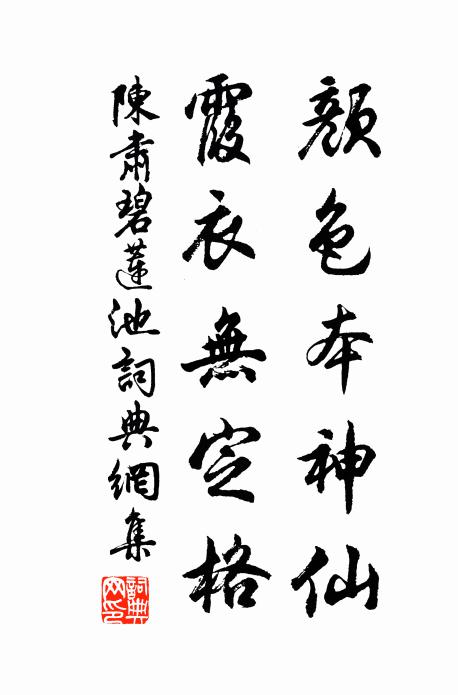 顔色本神仙
霞衣無定格
陳肅碧蓮池詞典網集
詞典网印